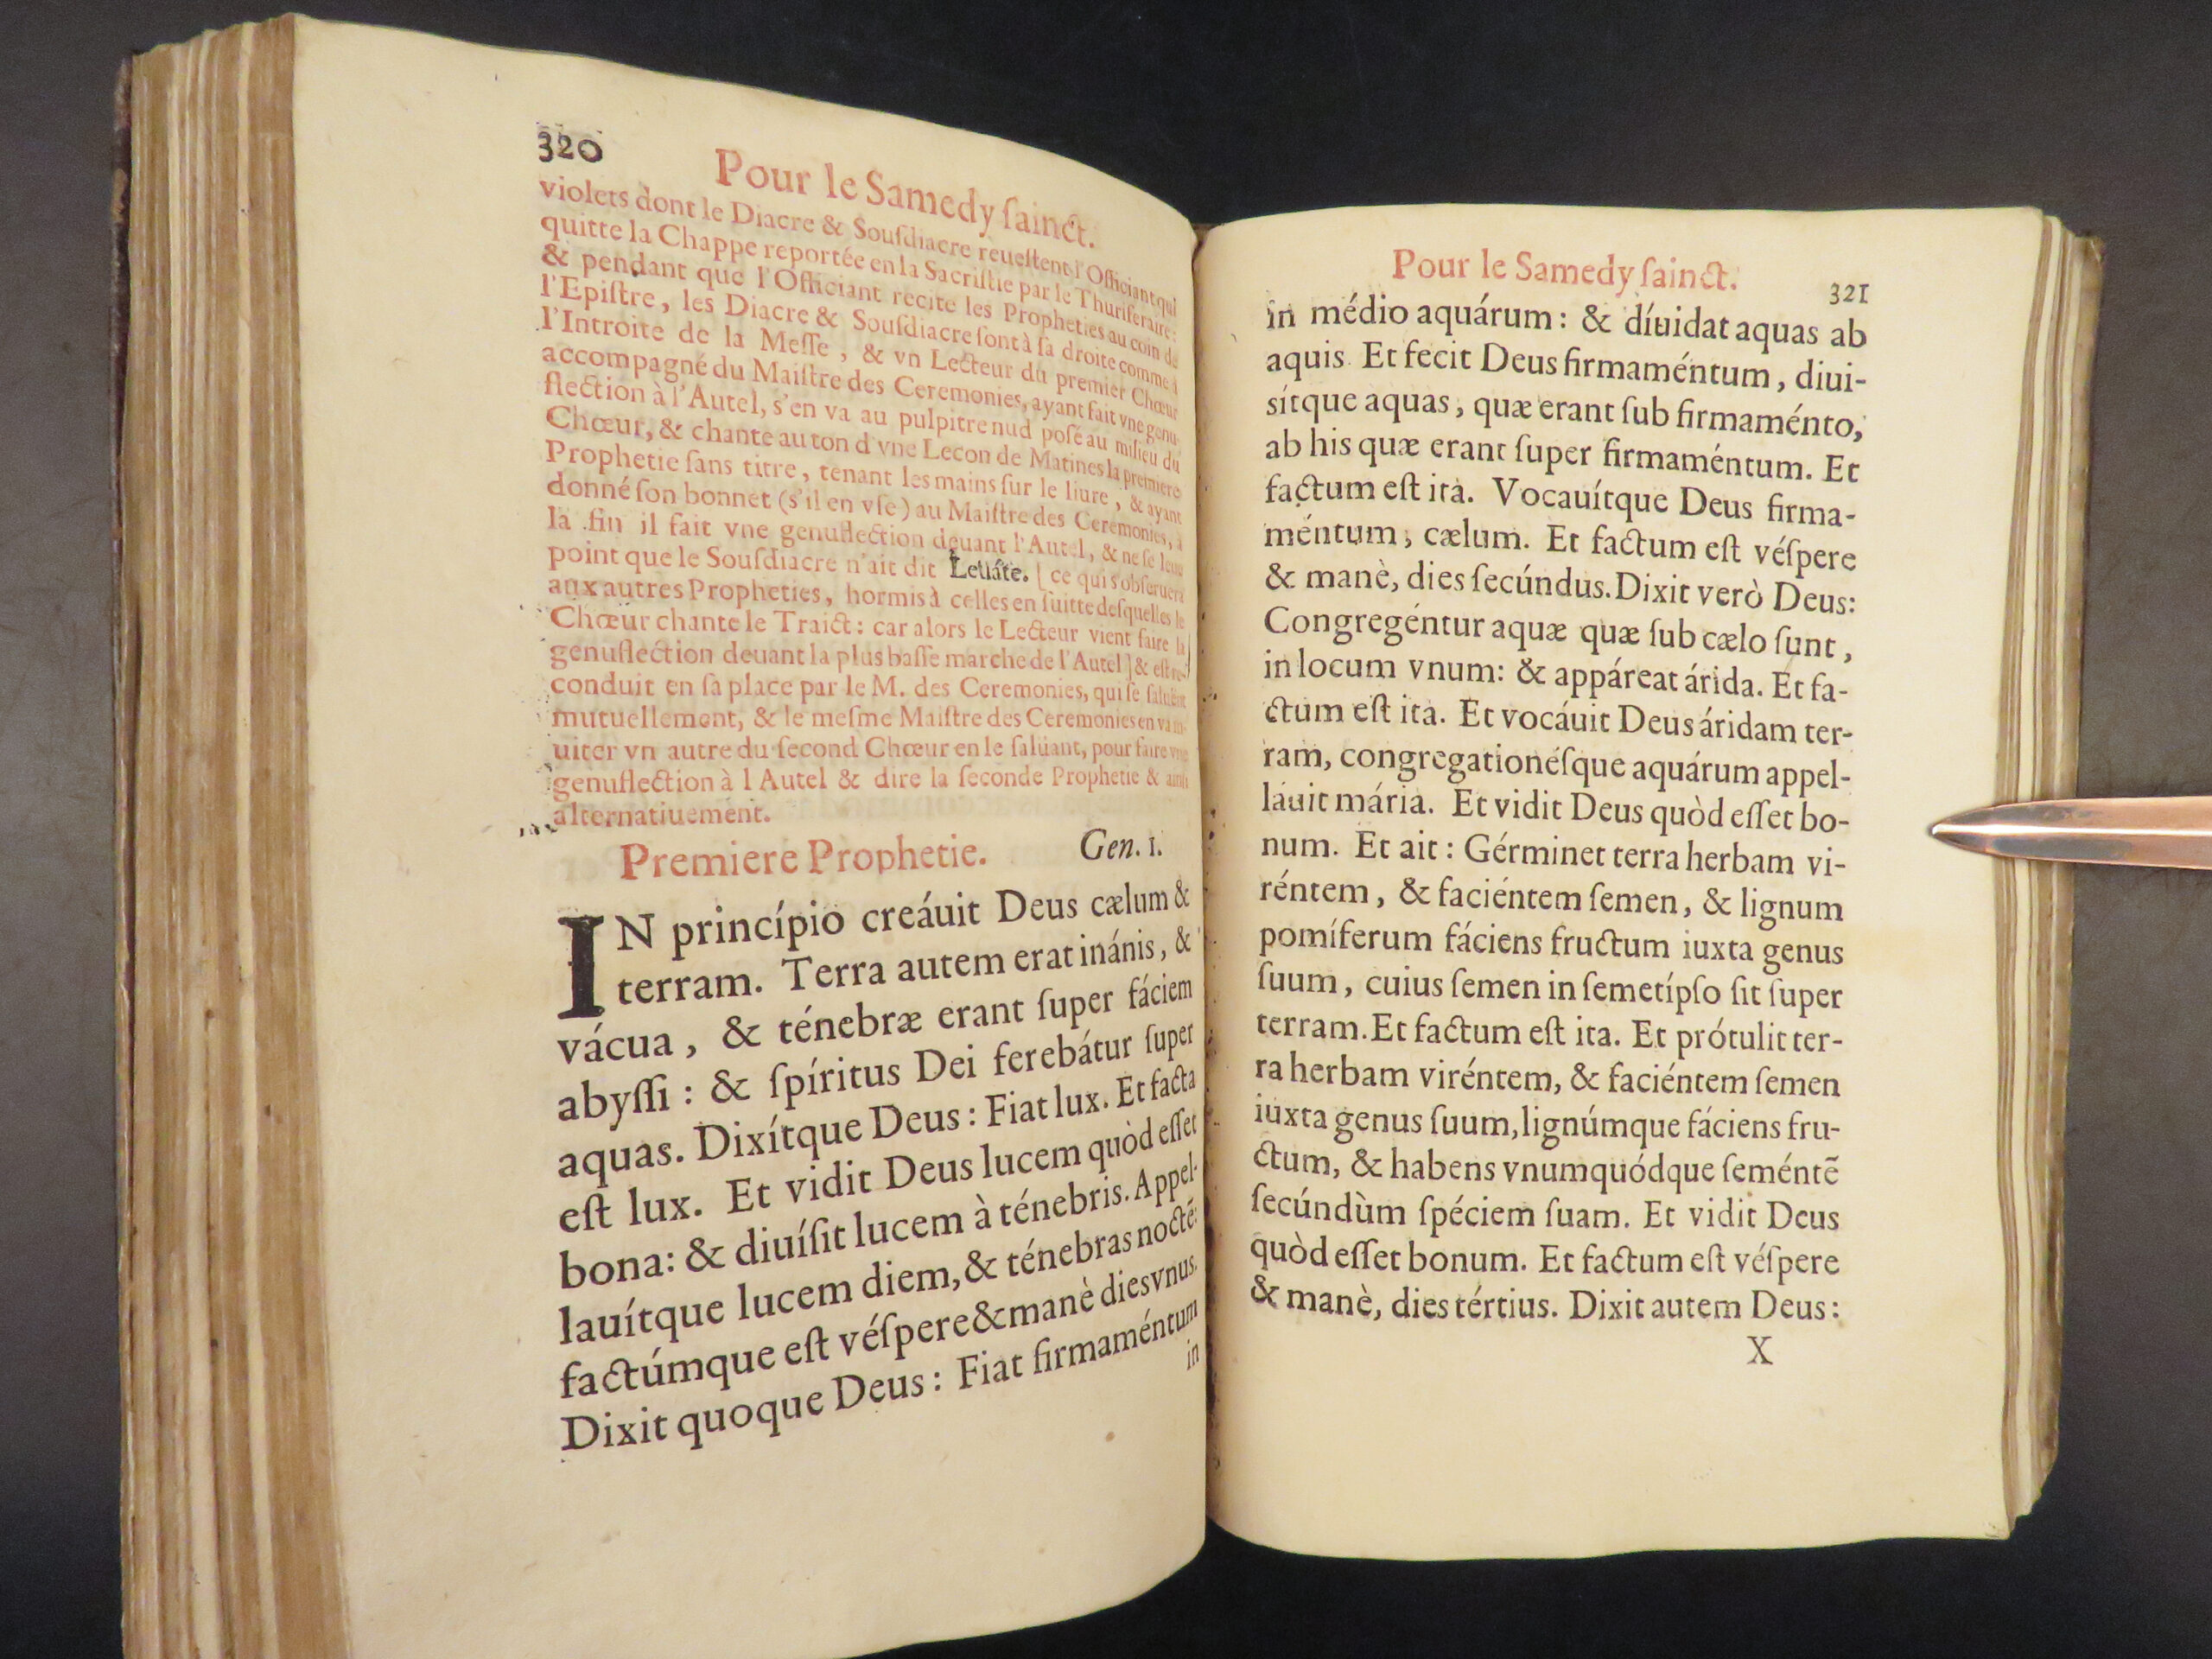 320
Pour le Samedy ſainct.
violets dont le Diacre & Souſdiacre reueſtent l'Officiant qui
quitte la Chappe reportée en la Sacriſtie par le Thuriferaire:
& pendant que l'Officiant recite les Propheties au coin de
l'Epiſtre, les Diacre & Souſdiacre ſont à ſa droite comme à
l'Introite de la Meſſe, & vn Lecteur du premier Chœur
accompagné du Maiſtre des Ceremonies, ayant fait vne genu-
flection à l'Autel, s'en va au pulpitre nud poſé au milieu du
Chœur, & chante au ton d'vne Lecon de Matines la premiere
Prophetie ſans titre, tenant les mains ſur le liure, & ayant
donné ſon bonnet (s'il en vſe) au Maiſtre des Ceremonies, à
la fin il fait vne genuflection deuant l'Autel, & ne ſe leue
point que le Souſdiacre n'ait dit Leuáte. [ce qui s'obſeruera
aux autres Propheties, hormis à celles en ſuitte deſquelles le
Chœur chante le Traict: car alors le Lecteur vient faire la
genuflection deuant la plus baſſe marche de l'Autel] & eſt re-
conduit en ſa place par le M. des Ceremonies, qui ſe ſaluent
mutuellement, & le meſme Maiſtre des Ceremonies en va in-
uiter vn autre du ſecond Chœur en le ſaluant, pour faire vne
genuflection à l Autel & dire la ſeconde Prophetie & ainſi
alternatiuement.
Premiere Prophetie. Gen. 1.
IN princípio creáuit Deus cælum &
terram. Terra autem erat inánis, &
vácua, & ténebræ erant ſuper fáciem
abyſſi: & ſpíritus Dei ferebátur ſuper
aquas. Dixítque Deus: Fiat lux. Et facta
eſt lux. Et vidit Deus lucem quòd eſſet
bona: & diuíſit lucem à ténebris. Appel-
lauítque lucem diem, & ténebras nocté:
factúmque eſt véſpere & manè dies vnus.
Dixit quoque Deus: Fiat firmaméntum
in
Pour le Samedy ſainct. 321
in médio aquárum: & díuidat aquas ab
aquis. Et fecit Deus firmaméntum, diui-
sítque aquas, quæ erant ſub firmaménto,
ab his quæ erant ſuper firmaméntum. Et
factum eſt ita. Vocauítque Deus firma-
méntum, cælum. Et factum eſt véſpere
& manè, dies ſecúndus. Dixit verò Deus:
Congregéntur aquæ quæ ſub cælo ſunt,
in locum vnum: & appáreat árida. Et fa-
ctum eſt ita. Et vocáuit Deus áridam ter-
ram, congregationéſque aquárum appel-
láuit mária. Et vidit Deus quòd eſſet bo-
num. Et ait: Gérminet terra herbam vi-
réntem, & faciéntem ſemen, & lignum
pomíferum fáciens fructum iuxta genus
ſuum, cuius ſemen in ſemetípſo ſit ſuper
terram. Et factum eſt ita. Et prótulit ter-
ra herbam viréntem, & faciéntem ſemen
iuxta genus ſuum, lignúmque fáciens fru-
ctum, & habens vnumquódque ſeméntẽ
ſecúndùm ſpéciem ſuam. Et vidit Deus
quòd eſſet bonum. Et factum eſt véſpere
& manè, dies tértius. Dixit autem Deus:
X